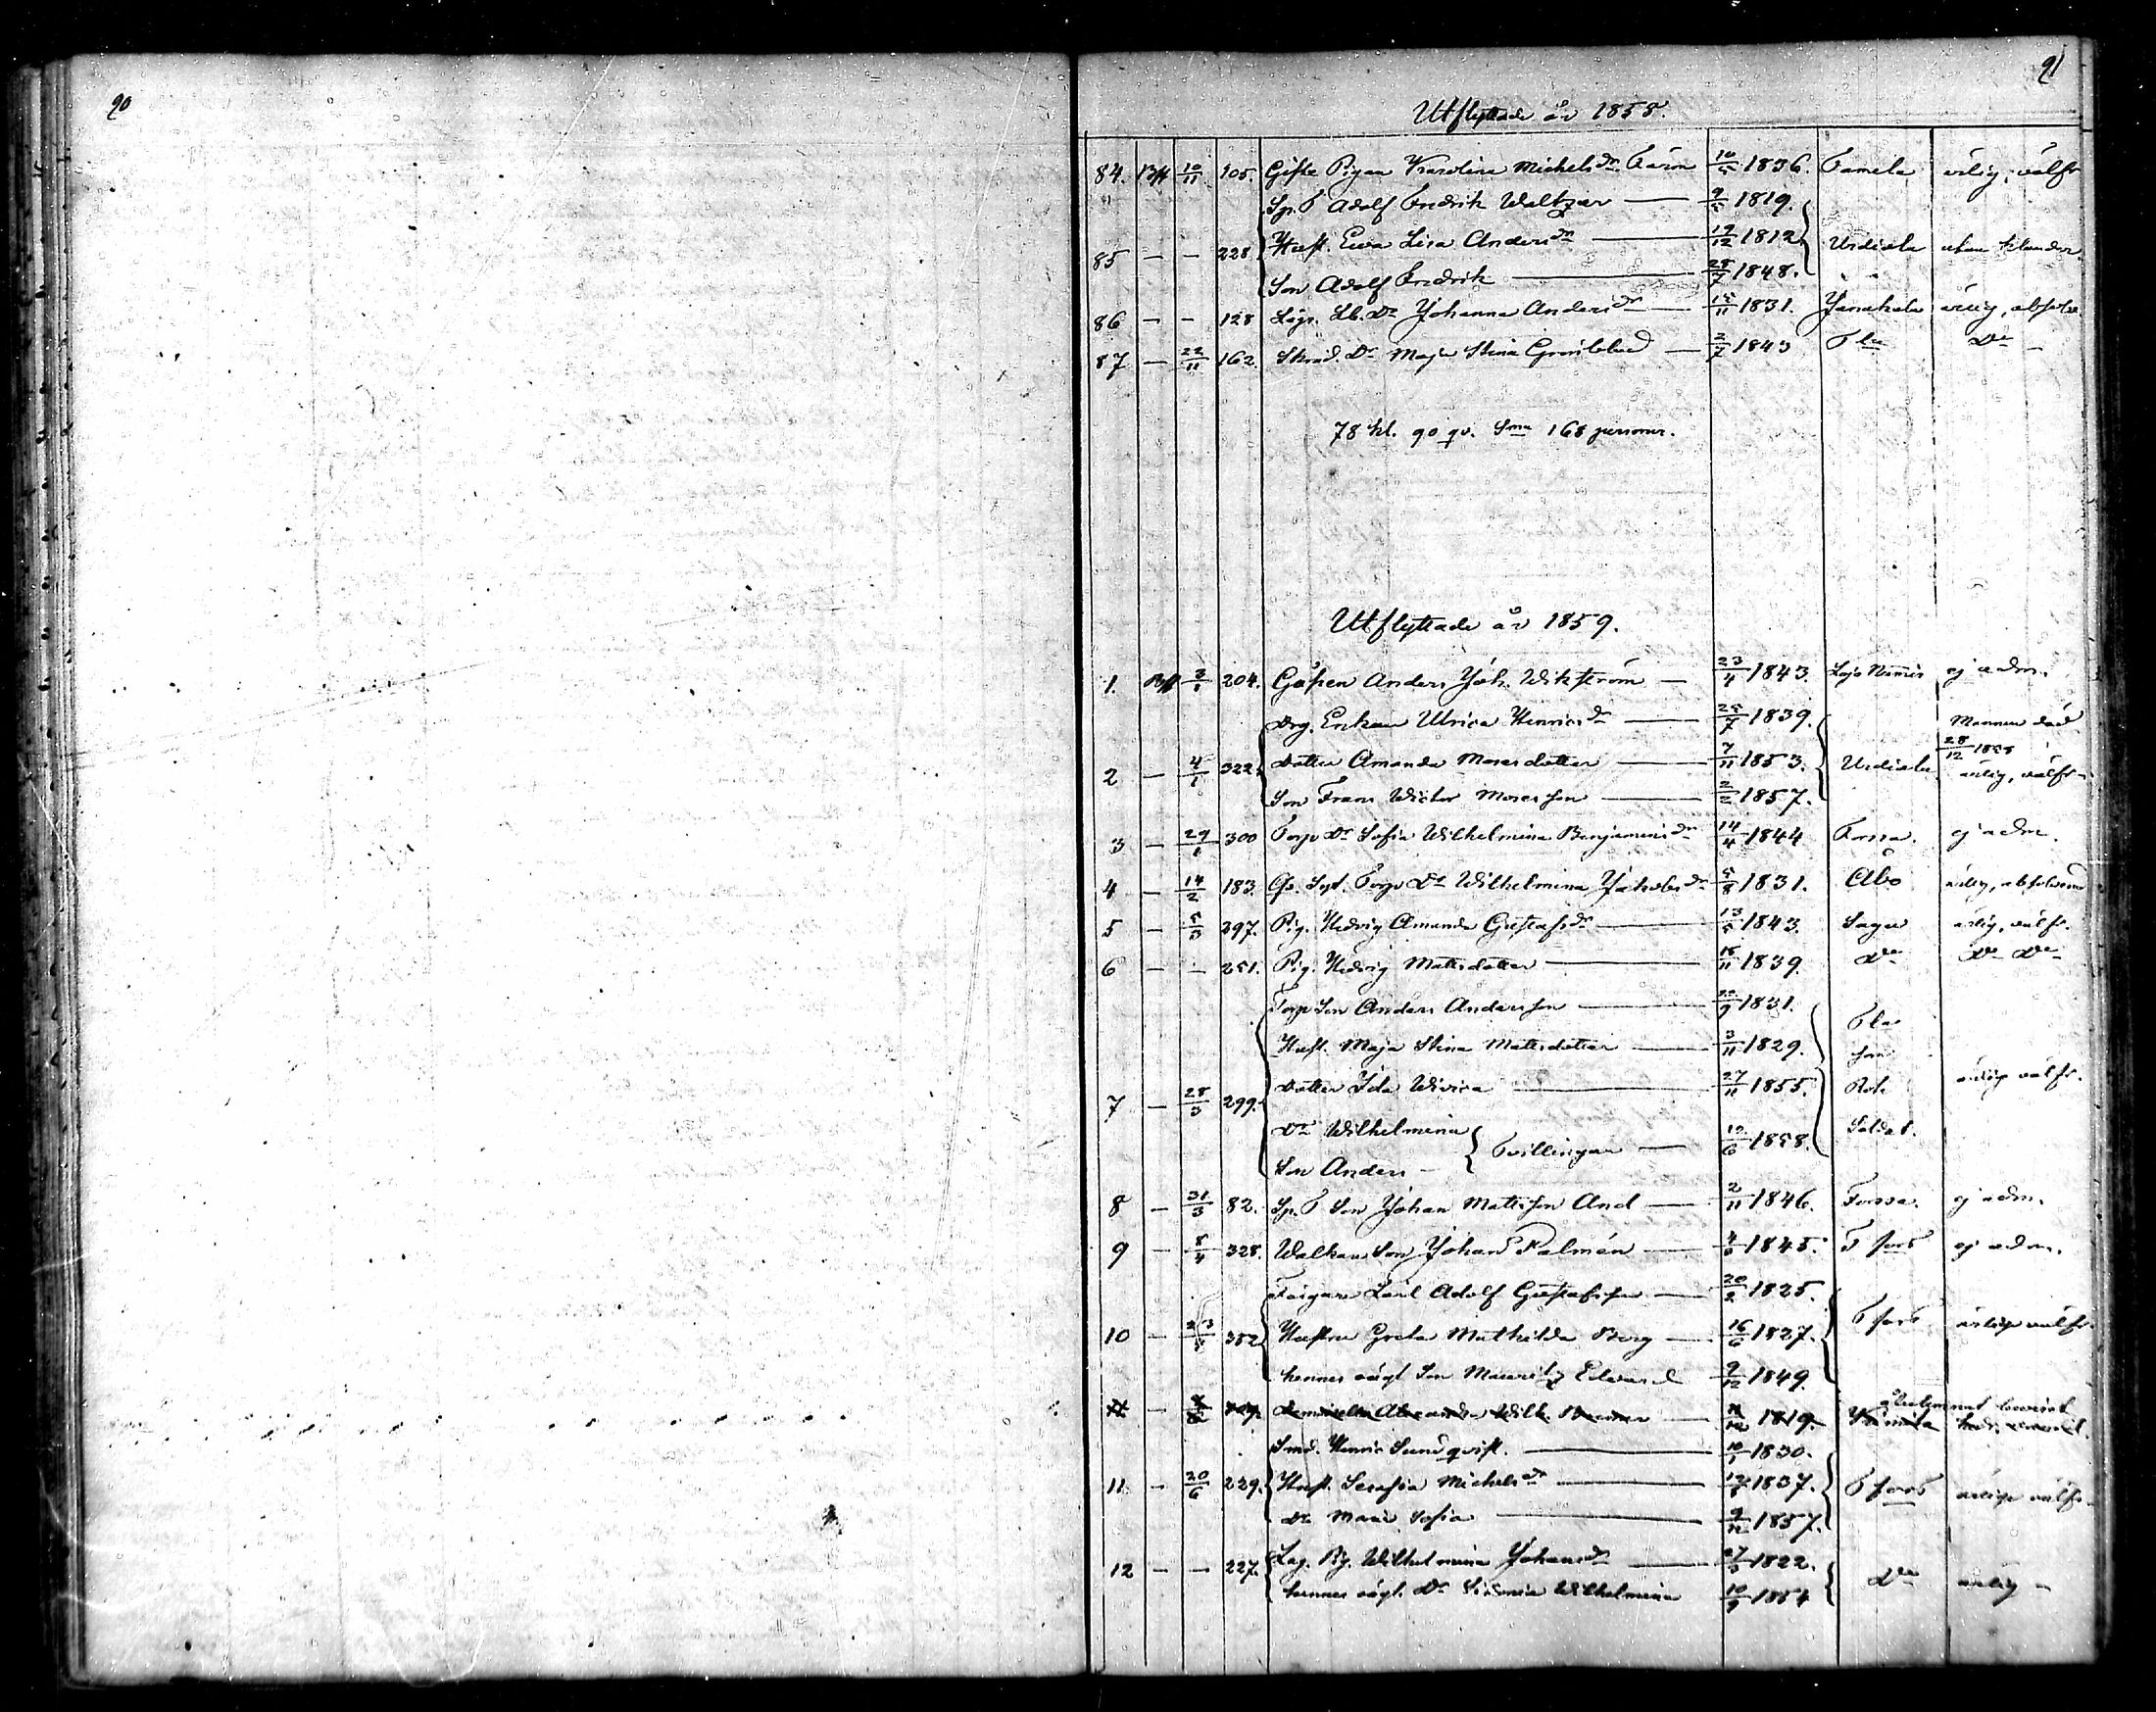 90
91
Utflyttade år 1858.
84. Btt 10/11 105. Gifte Pigan Karolina Michelsdr 10/5 1836. Tamela ärlig, välfr
Sp. T Adolf Fredrik Waltzer — 9/5 1819.
85 — — 228 Hust. Ewa Lisa Andersdr — 12/12 1812 Urdiala utan klander
Son Adolf Fredrik — 28/7 1848.
86 — — 128 Johanna Andersdr — 15/11 1831. Janakala ärlig, absolv
87 — 22/11 162. Skräd. Dr Maja Stina — 2/7 1843 Tla Do
78 kl. 90 qv. Sma 168 personer.
Utflyttade år 1859.
1. Btt 3/1 204. Gåssen Anders Joh. Wikström — 23/4 1843. Lojo ej adm.
Drg. Enkan Ulrica Henricsdr — 25/7 1839. Mannen död
28/12 1858
2 — 4/1 322 Dotter Amanda Mosesdotter — 7/11 1853. Urdiala ärlig, välfr
Son Frans Wictor Mosesson — 2/2 1857.
3 — 29/1 300 Torp Dr Sofia Wilhelmina Benjaminsdr 14/4 1844 Forssa. ej adm.
4 — 14/2 183. Torp Dr Wilhelmina Jakobsdr 5/8 1831. Åbo ärlig, absolverad
5 — 5/3 297. Pig. Hedvig Amanda Gustafsdr — 13/5 1843. Sagu ärlig, välfr.
6 — — 251. Pig. Hedvig Mattsdotter — 15/11 1839. Do Do Do
Torp Son Anders Andersson — /9 1831. Tla
Hust. Maja Stina Mattsdotter — 3/11 1829. som
7 — 28/3 299. Dotter Ida Wivica — 27/11 1855. Rot. ärlige välfr.
Dr Wilhelmina } Tvillingar — 12/6 1858. Soldat.
Son Anders —
8 — 31/3 82. Sp. T Son Johan Mattsson And — 2/11 1846. Forssa. ej adm.
9 — 8/4 328. Walkare Son Johan Palmén — 1845. T fors ej adm.
Färgare Carl Adolf Gustafsson — 20/2 1825.
10 — 23/5 352 Hustru Greta Mathilda Berg — 16/6 1827. T fors ärlige välfr.
hennes oägt Son Mauritz Edvard 9/12 1849.
— 1819.
Smed. Henric Sundqvist. — 1830.
11. — 20/6 229. Hust. Serafia Michelsdr — 1837. T fors ärlige välfr.
Dr Maria Sofia — 9/12 1857.
12 — — 227. Wilhelmina Johansdr — 27/3 1822. Do ärlig —
hennes oägt. Dr Wilhelmina 10/9 1854